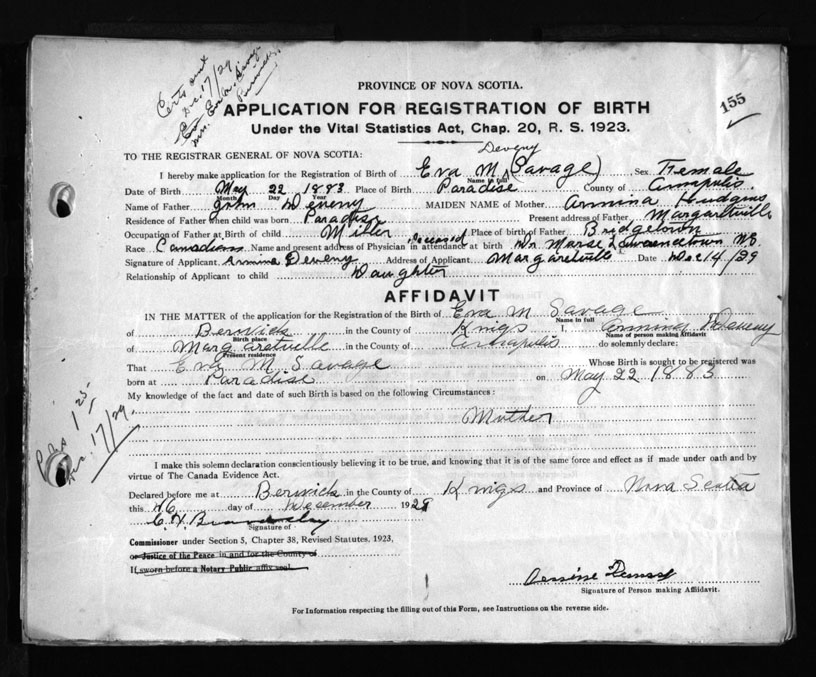 Certs sent
Dec. 17/29
Mrs. Eva
155
PROVINCE OF NOVA SCOTIA.
APPLICATION FOR REGISTRATION OF BIRTH
Under the Vital Statistics Act, Chap. 20, R. S. 1923.
TO THE REGISTRAR GENERAL OF NOVA SCOTIA:
Deveny
I hereby make application for the Registration of Birth of Eva M (Savage) Sex Female
Name in full
Date of Birth May 22 1883 Place of Birth Paradise County of Annapolis
Month Day Year
Name of Father John Deveny MAIDEN NAME of Mother Armina Hudgins
Residence of Father when child was born Paradise Present address of Father Margaretville
Occupation of Father at Birth of child Miller deceased Place of birth of Father Bridgetown
Race Canadian Name and present address of Physician in attendance at birth Dr. Morse Lawrencetown
Signature of Applicant Armina Deveny Address of Applicant Margaretville Date Dec 14/29
Relationship of Applicant to child Daughter
AFFIDAVIT
IN THE MATTER of the application for the Registration of the Birth of Eva M Savage
Name in full
of Berwick in the County of Knigs I, Armina Deveny
Birth place Name of person making Affidavit
of Margaretville in the County of Annapolis do solemnly declare:
Present residence
That Eva M. Savage Whose Birth is sought to be registered was
born at Paradise on May 22 1883
My knowledge of the fact and date of such Birth is based on the following Circumstances:
Mother
I make this solemn declaration conscientiously believing it to be true, and knowing that it is of the same force and effect as if made under oath and by
virtue of The Canada Evidence Act.
Declared before me at Berwick in the County of Knigs and Province of Nova Scotia
this day of December 1929
Signature of
Commissioner under Section 5, Chapter 38, Revised Statutes, 1923,
or Justice of the Peace in and for the County of
If sworn before a Notary Public affix seal.
Signature of Person making Affidavit.
For Information respecting the filling out of this Form, see Instructions on the reverse side.
Dec. 17/29.